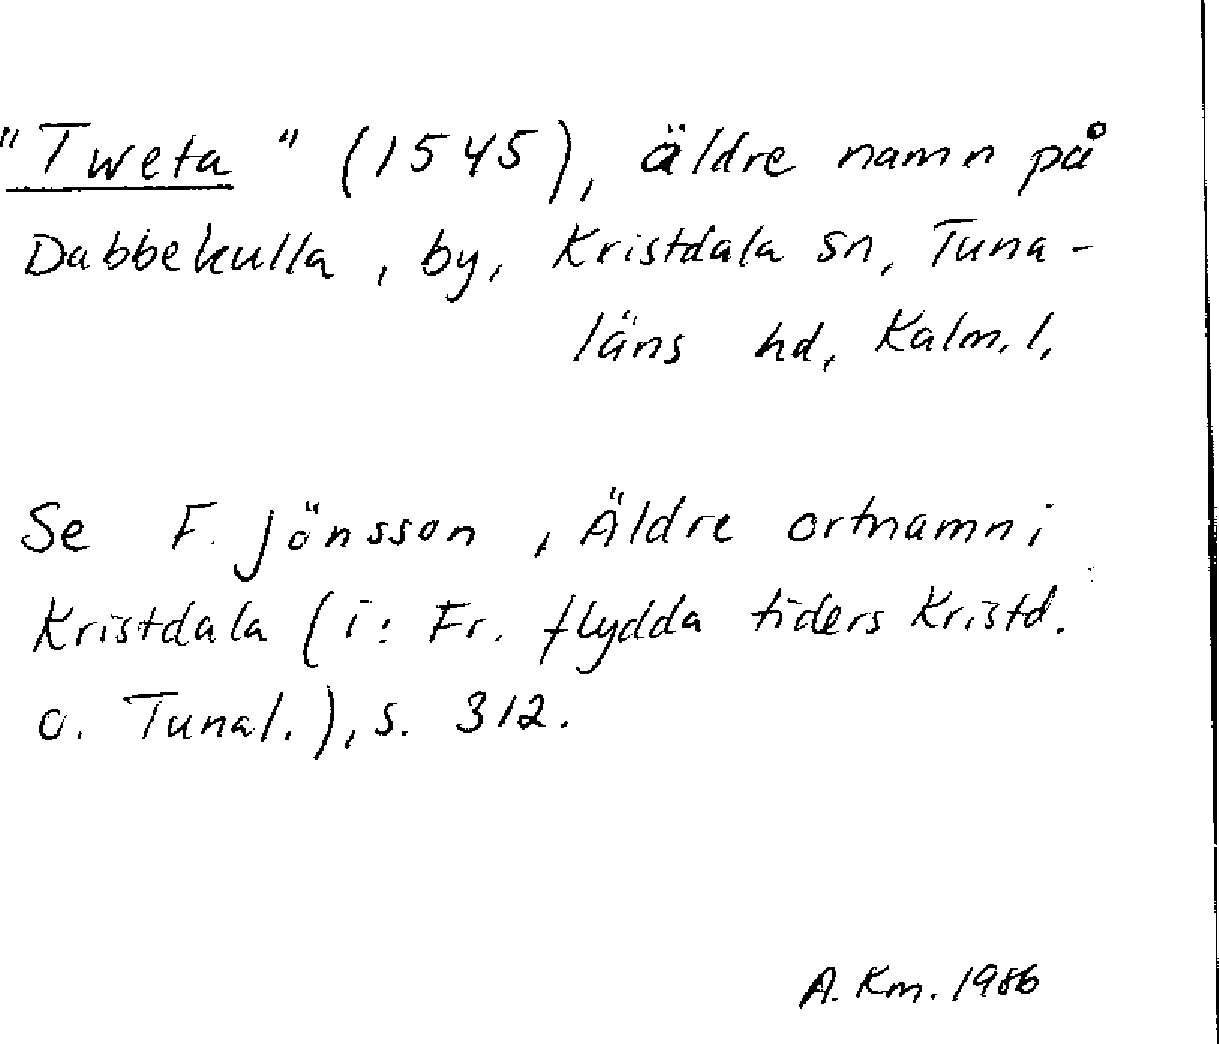 "Tweta" (1545), äldre namn på
Dabbekulla, by, Kristdala sn, Tuna-
läns hd, Kalm. l.
Se F. Jönsson, Äldre ortnamn i
Kristdala (i: Fr. flydda tiders Kristd.
o. Tunal.), s. 312.
A. Km. 1986